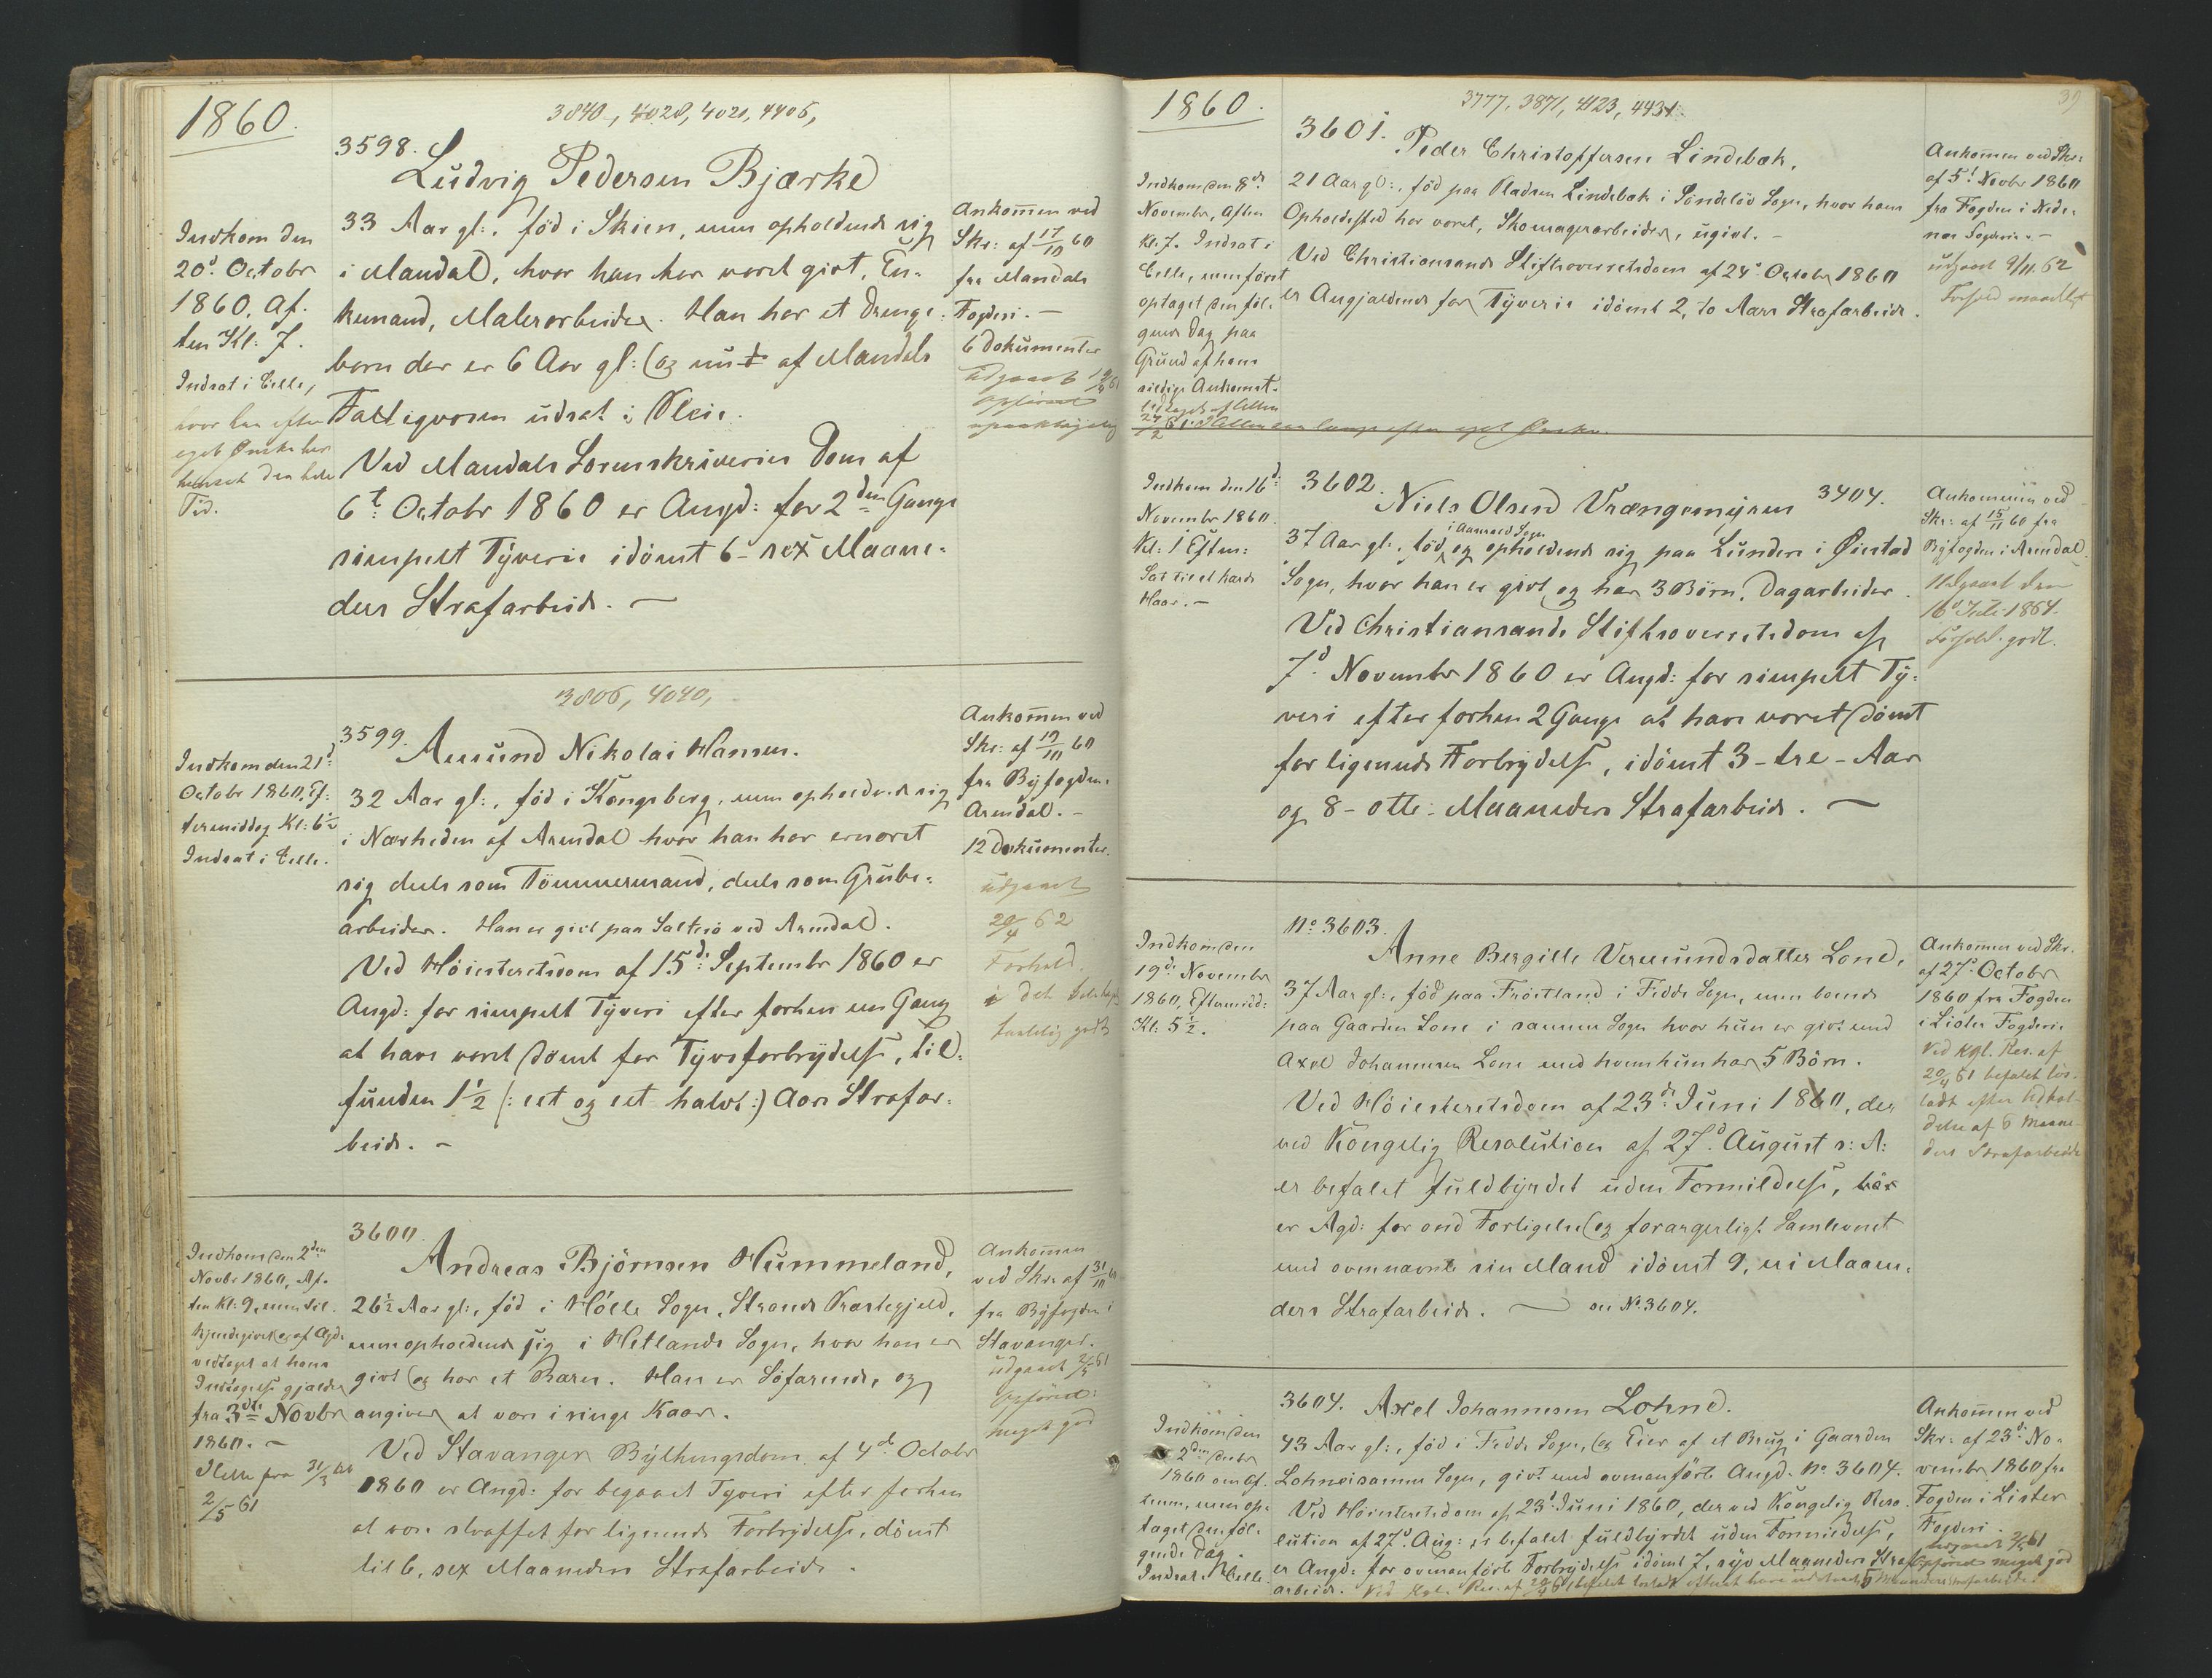 1860.
3840, 4028, 4020, 4405,
3598.
Ludvig Pedersen Bjærke
Indkom den
20d. Octobr
1860, Af-
ten Kl: 7.
Indsat i Celle,
hvor han efter
eget Ønske har
hensat den hele
Tid.
33 Aar gl:, föd i Skien, men opholdende sig
i Mandal, hvor han har været givt, En-
kemand, Malerarbeider. Han har et Drenge-
barn der er 6 Aar gl: og af Mandals
Fattigvæsen udsat i Pleie.
Ved Mandals Sorenskriveries Dom af
6t. Octobr 1860 er Angd: for 2den Gangs
simpelt Tÿverie idömt 6 - sex Maane-
ders Strafarbeide. —
Ankommen ved
Skr: af 17/10 60
fra Mandals
Fogderi. —
6 Dokumenter
udgaaet
Opförsel
upaaklagelig
3806, 4040,
3599.
Amund Nikolai Hansen.
Indkom den 21d:
Octobr 1860, Ef-
termiddag Kl: 6½
Indsat i Celle.
32 Aar gl:, föd i Kongsberg, men opholdende sig
i Nærheden af Arendal hvor han har ernæret
sig deels som Tömmermand, deels som Grube-
arbeider. Han er givt paa Salterö ved Arendal.
Ved Höiesteretsdom af 15d: Septembr 1860 er
Angd: for simpelt Tÿveri efter forhen en Gang
at have været dömt for Tÿvsforbrÿdelse, til-
funden 1½ (: eet og eet halvt :) Aars Strafar-
beide. —
Ankommen ved
Skr: af 19/10 60
fra Bÿfogden i
Arendal. —
12 Dokumenter.
udgaaet
20/4 62
Forhold
i det
taalelig godt
3600.
Andreas Björnsen Hummeland,
Indkom den 2den
Novbr 1860, Af-
ten Kl: 9, men til-
kjendegivet og af Agd:
vedtaget at hans
Indsægelse gjælder
fra 3die Novbr
1860. —
Celle fra 31/3 til
2/5 61
26½ Aar gl:, föd i Hölle Sogn, Strands Præstegjeld,
men opholdende sig i Hetlands Sogn, hvor han er
givt og har et Barn. Han er Söfarende, og
angiver at være i ringe Kaar.
Ved Stavanger Bÿthingsdom af 4de Octobr
1860 er Angd: for begaaet Tÿveri efter forhen
at være straffet for lignende Forbrÿdelse, dömt
til 6, sex Maaneders Strafarbeide.
Ankommen
ved Skr: af 31/10 60
fra Bÿfogden i
Stavanger.
udgaaet 2/5 61
Opförsel:
meget god
1860.
3777, 3871, 4123, 4431
39
3601.
Peder Christoffersen Lindebæk,
Indkom den 8de
Novembr, Aften
Kl: 7. Indsat i
Celle, men först
optaget den föl-
gende Dag paa
Grund af hans
sildige Ankomst.
Udtaget af Cellen
eget Ønske.
21 Aar gl:, föd paa Pladsen Lindebæk i Söndelöv Sogn, hvor hans
Opholdsted har været, Skomagerarbeider, ugivt. —
Ved Christiansands Stiftsoverretsdom af 24d: Octobr 1860
er Angjældende for Tÿverie idömt 2, to Aars Strafarbeide.
Ankommen ved Skr:
af 5t Novbr 1860
fra Fogden i Nede-
næs Fogderie. —
udgaaet 9/11. 62
Forhold maadeligt
3602.
Niels Olsen Vrængemÿren 3404.
Indkom den 16d:
Novembr 1860
Kl: 1 Efterm:
Sat til et hards
Haar. —
i Sogn
37 Aar gl:, föd og opholdende sig paa Lunden i Øiestad
Sogn, hvor han er givt og har 3 Börn. Dagarbeider.
Ved Christiansands Stiftsoverretsdom af
7d. Novembr 1860 er Angd: for simpelt Tÿ-
veri efter forhen 2 Gange at have været dömt
for lignende Forbrÿdelse, idömt 3 - tre - Aar
og 8 - otte - Maaneders Strafarbeide. —
Ankommen ved
Skr: af 15/11 60 fra
Bÿfogden i Arendal.
Udgaaet den
16d Juli 1864.
Forhold: godt.
No. 3603.
Anne Bergitte Vermundsdatter Lone,
Indkom den
19de Novembr
1860, Eftermidd:
Kl: 5½.
37 Aar gl:, föd paa Fröitland i Fedde Sogn, men boende
paa Gaarden Lone i samme Sogn hvor hun er givt med
Axel Johannesen Lone med hvem hun har 5 Börn.
Ved Höiesteretsdom af 23de: Juni 1860, der
ved Kongelig Resolution af 27d. August s: A:
er befalet fuldbÿrdet uden Formildelse,
er Agd: for ond Forligelse og forargerligt Samlevnet
med ovennævnte sin Mand idömt 9, ni Maane-
ders Strafarbeide. — see No. 3604.
Ankommen ved Skr.
af 27d. Octobr
1860 fra Fogden
i Lister Fogderie
Ved Kgl. Res. af
20/4 61 befalet lös-
ladt efter Udhol-
delse af 6 Maane-
ders Strafarbeide
3604. Axel Johannesen Lohne.
Indkom den
2den
1860 om Af-
tenen, men op-
taget den föl-
gende Dag.
Indsat i Celle.
43 Aar gl:, föd i Fedde Sogn, og Eier af et Brug i Gaarden
Lohne i samme Sogn, givt med ovenanförte Angd. No. 3604.
Ved Höiesteretsdom af 23d Juni 1860, der ved Kongelig Reso-
lution af 27d. Aug: er befalet fuldbÿrdet uden Formildelse,
er Angd: for ovenanförte Forbrÿdelse idömt 7, sÿv Maaneders Straf-
arbeide. Ved Kgl. Res. af 20/4 61 befalet lösladt efter at have udstaaet 5 Maaneders Strafarbeide.
Ankommen ved
Skr: af 23d: No-
vembr 1860 fra
Fogden i Lister
Fogderi.
Udgaaet 2/5 61
Opförsel meget god